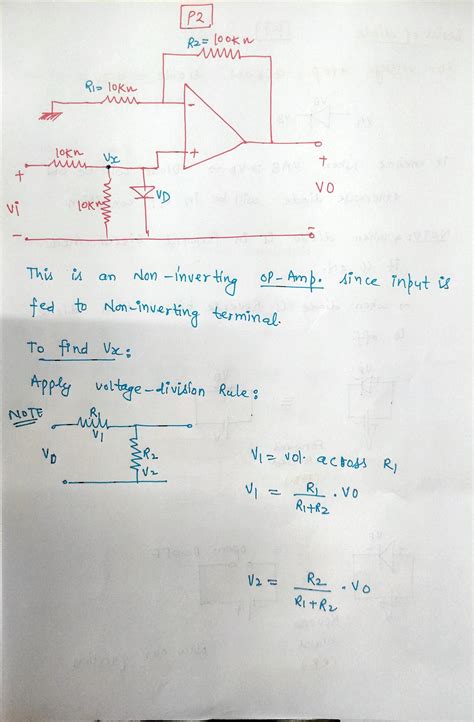 P2
R2= 100Kn
R1= 10Kn
-
10Kn
Vx
+
+
+
VD
VO
Vi
10Kn
-
-
This is an Non-inverting op-Amp. since input is
fed to Non-inverting terminal.
To find Vx:
Apply voltage-division Rule:
NOTE
R1
V1
VD
R2
V2
V1= vol. across R1
V1 = R1/R1+R2 . VO
V2 = R2/R1+R2 . VO